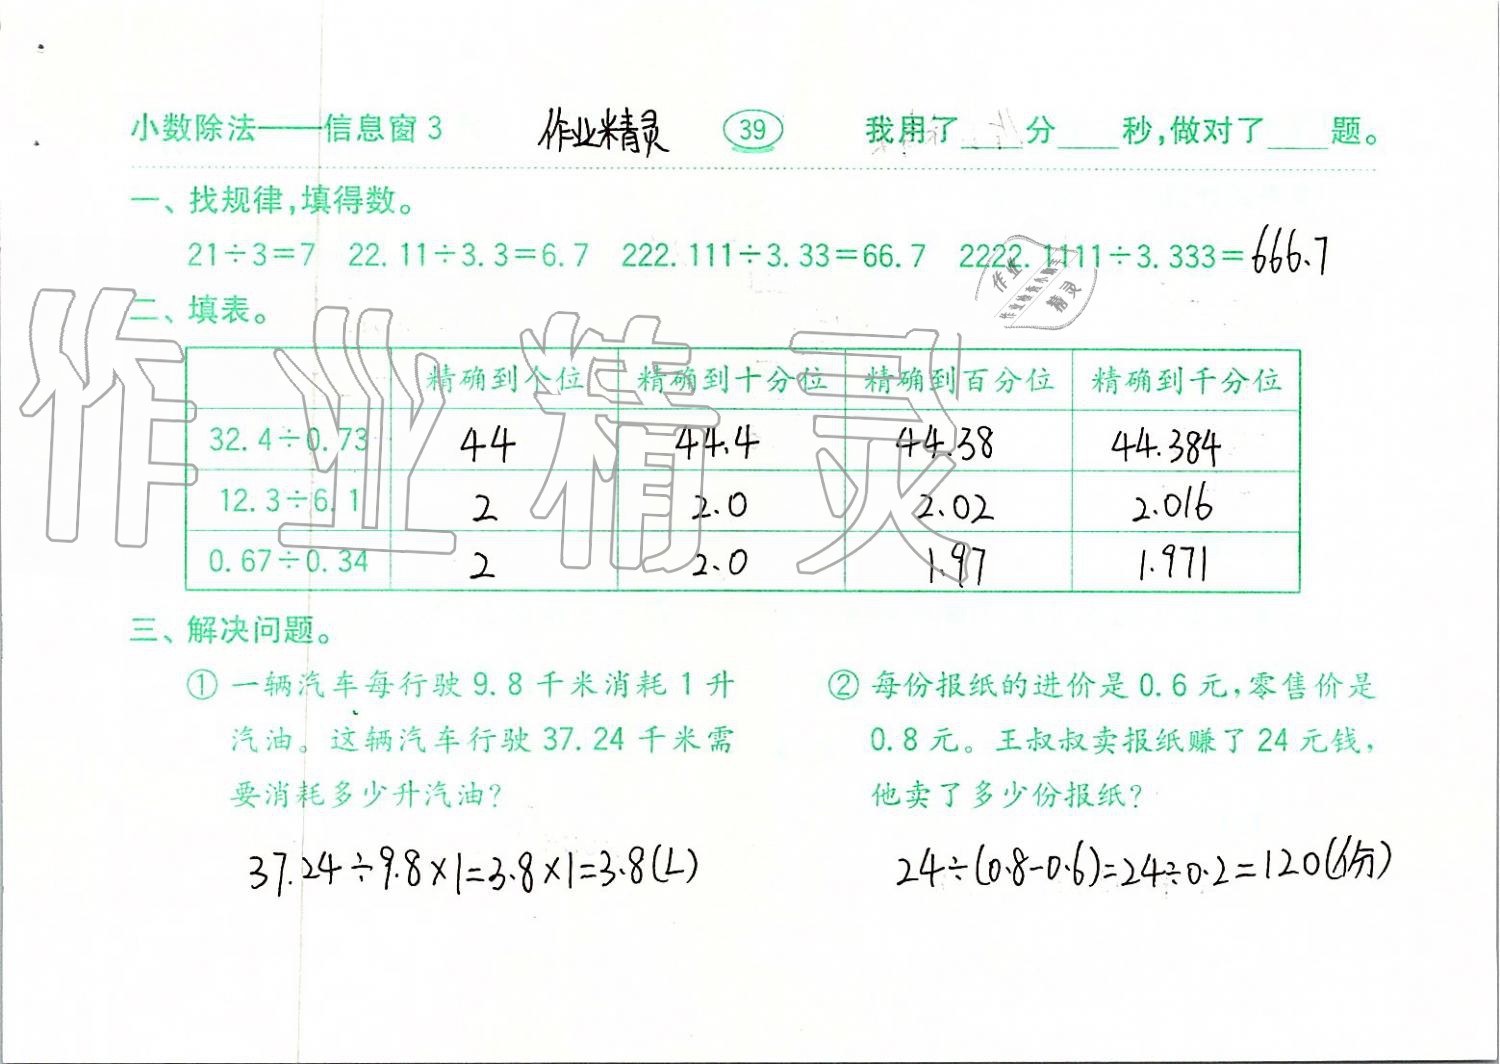 小数除法——信息窗3 作业精灵 39 我用了____分____秒,做对了____题。
一、找规律,填得数。
21÷3=7 22.11÷3.3=6.7 222.111÷3.33=66.7 2222.1111÷3.333=666.7
二、填表。
精确到个位 精确到十分位 精确到百分位 精确到千分位
32.4÷0.73 44 44.4 44.38 44.384
12.3÷6.1 2 2.0 2.02 2.016
0.67÷0.34 2 2.0 1.97 1.971
作业精灵
三、解决问题。
① 一辆汽车每行驶9.8千米消耗1升
汽油。这辆汽车行驶37.24千米需
要消耗多少升汽油?
37.24÷9.8×1=3.8×1=3.8(L)
② 每份报纸的进价是0.6元,零售价是
0.8元。王叔叔卖报纸赚了24元钱,
他卖了多少份报纸?
24÷(0.8-0.6)=24÷0.2=120(份)